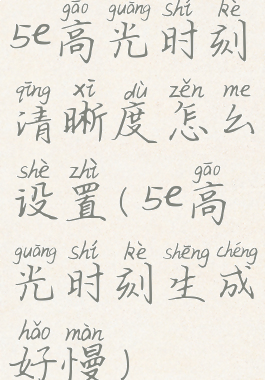 gāo guāng shí kè
5e高光时刻
qīng xī dù zěn me
清晰度怎么
shè zhì gāo
设置(5e高
guāng shí kè shēng chéng
光时刻生成
hǎo màn
好慢)